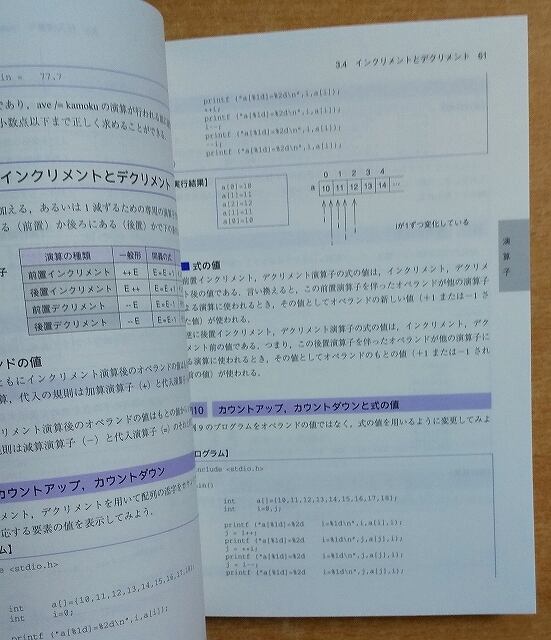 in = 77.7
であり，ave /= kamoku の演算が行われる
小数点以下まで正しく求めることができる.
インクリメントとデクリメント
加える，あるいは1減ずるための専用の演算子
る（前置）か後ろにある（後置）かで
演算の種類 一般形 同義の式
前置インクリメント ++E E=E+1
後置インクリメント E++ E=E+1
前置デクリメント --E E=E-1
後置デクリメント --E E=E-1
ンドの値
ともにインクリメント演算後のオペランドの値は
算，代入の規則は加算演算子（+）と代入演算子
リメント演算後のオペランドの値はもとの値から
規則は減算演算子（－）と代入演算子（=）の
カウントアップ，カウントダウン
メント，デクリメントを用いて配列の添字を
応する要素の値を表示してみよう.
ム】
e <stdio.h>
int a[]={10,11,12,13,14,15,16,17,18
int i=0;
printf ("a[%1d]=%2d\n",i,a[i]);
3.4 インクリメントとデクリメント 61
printf ("a[%1d]=%2d\n",i,a[i]);
++i;
printf ("a[%1d]=%2d\n",i,a[i]);
i--;
printf ("a[%1d]=%2d\n",i,a[i]);
--i;
printf ("a[%1d]=%2d\n",i,a[i]);
実行結果】
a[0]=10
a[1]=11
a[2]=12
a[1]=11
a[0]=10
0 1 2 3 4
a 10 11 12 13 14 …
i i i i i
iが1ずつ変化している
演算子
■ 式の値
前置インクリメント，デクリメント演算子の式の値は，インクリメント，デクリメ
ト後の値である．言い換えると，この前置演算子を伴ったオペランドが他の演算子
よる演算に使われるとき，その値としてオペランドの新しい値（+1 または－1 さ
た値）が使われる.
更に後置インクリメント，デクリメント演算子の式の値は，インクリメント，デク
メント前の値である．つまり，この後置演算子を伴ったオペランドが他の演算子に
る演算に使われるとき，その値としてオペランドのもとの値（+1 または－1 され
前の値）が使われる.
10 カウントアップ，カウントダウンと式の値
9 のプログラムをオペランドの値ではなく，式の値を用いるように変更してみよ
ログラム】
nclude <stdio.h>
in()
int a[]={10,11,12,13,14,15,16,17,18};
int i=0,j;
printf ("a[%1d]=%2d i=%1d\n",i,a[i],i);
j = i++;
printf ("a[%1d]=%2d i=%1d\n",j,a[j],i);
j = ++i;
printf ("a[%1d]=%2d i=%1d\n",j,a[j],i);
j = i--;
printf ("a[%1d]=%2d i=%1d\n",j,a[j],i);